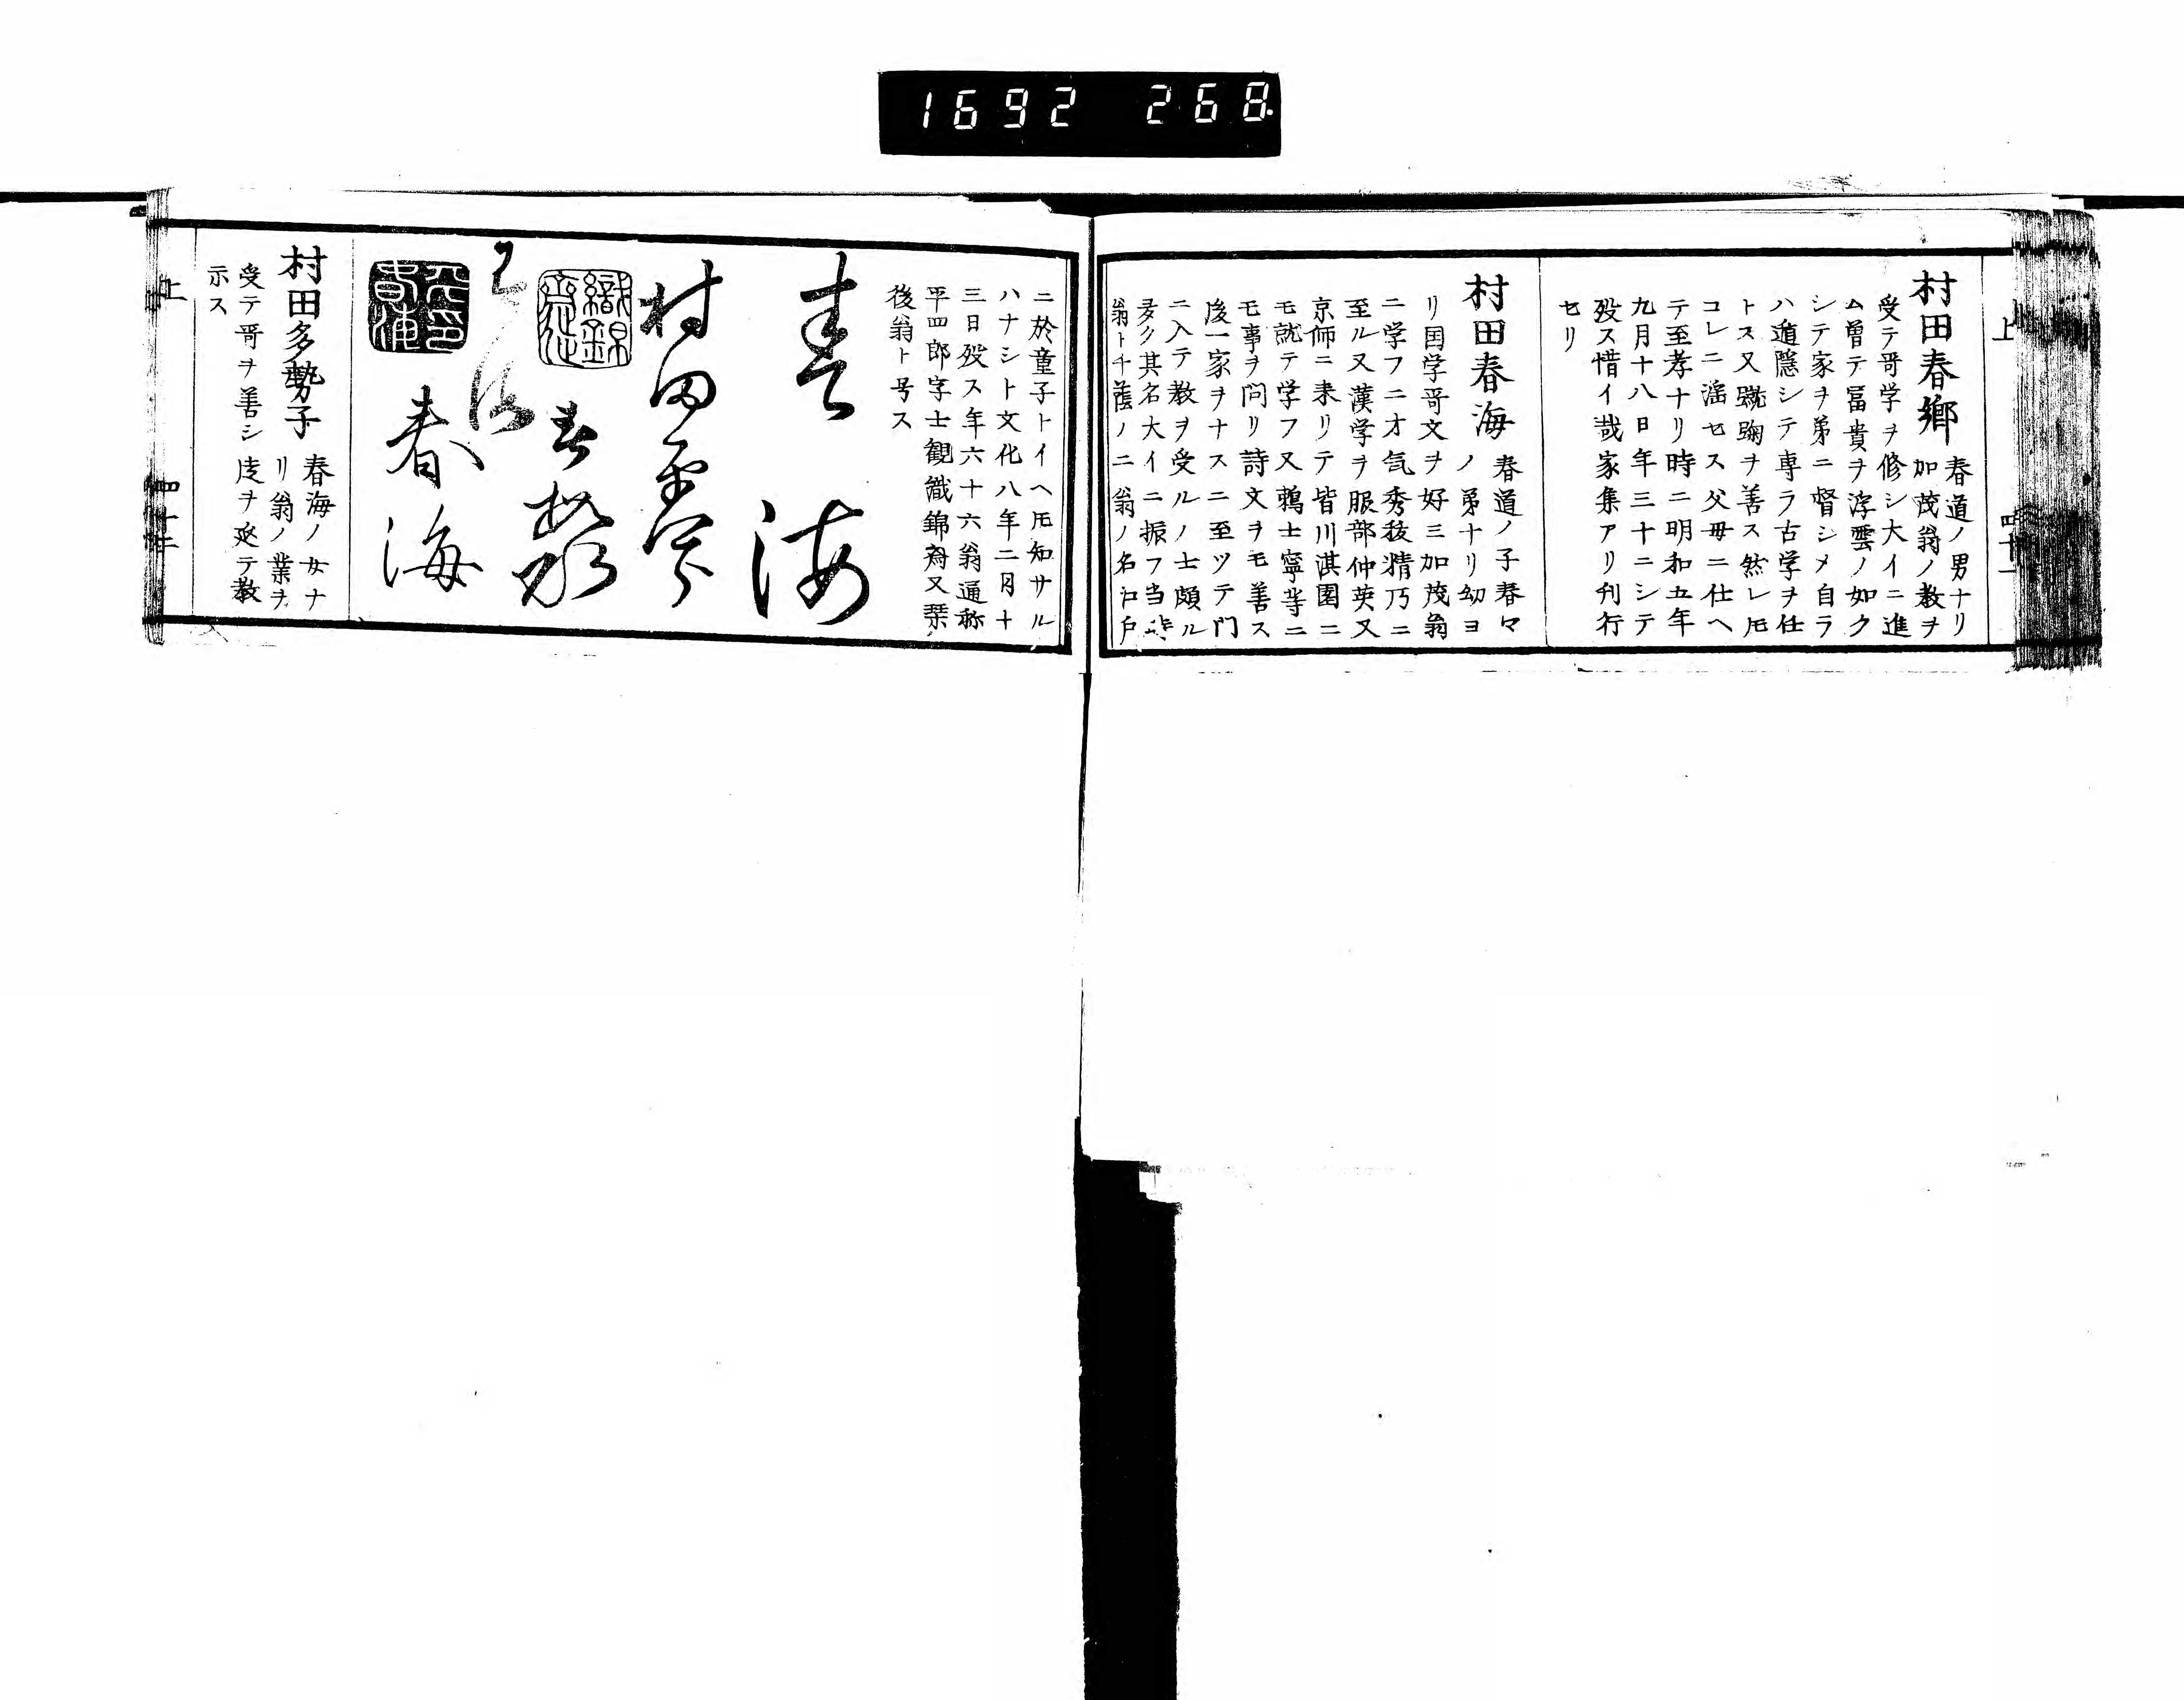 1692 268
上
四十一
村田春郷
春道ノ男ナリ
加茂翁ノ教ヲ
受テ哥学ヲ修シ大イニ進
ム曽テ冨貴ヲ浮雲ノ如ク
シテ家ヲ弟ニ督シメ自ラ
ハ遁隠シテ専ラ古学ヲ任
トス又蹴鞠ヲ善ス然レ𪜈
コレニ滛セス父毋ニ仕ヘ
テ至孝ナリ時ニ明和五年
九月十八日年三十ニシテ
殁ス惜イ哉家集アリ刋行
セリ
村田春海
春道ノ子春々
ノ弟ナリ幼ヨ
リ国学哥文ヲ好ミ加茂翁
ニ学フニ才気秀䏻精乃ニ
至ル又漢学ヲ服部仲英又
京師ニ来リテ皆川淇園ニ
モ就テ学フ又鵜士寧等ニ
モ事ヲ問リ詩文ヲモ善ス
後一家ヲナスニ至ツテ門
ニ入テ教ヲ受ルノ士頗ル
多ク其名大イニ振フ当時
翁ト千蔭ノ二翁ノ名江戸
ニ於童子トイヘ𪜈知サル
ハナシト文化八年二月十
三日殁ス年六十六翁通称
平四郎字士観織錦斎又琴
後翁ト号ス
春海
村田平春
織錦斎
春海
平春海
春海
村田多勢子
春海ノ女ナ
リ翁ノ業ヲ
受テ哥ヲ善シ徒ヲ延テ教
示ス
上
四十二